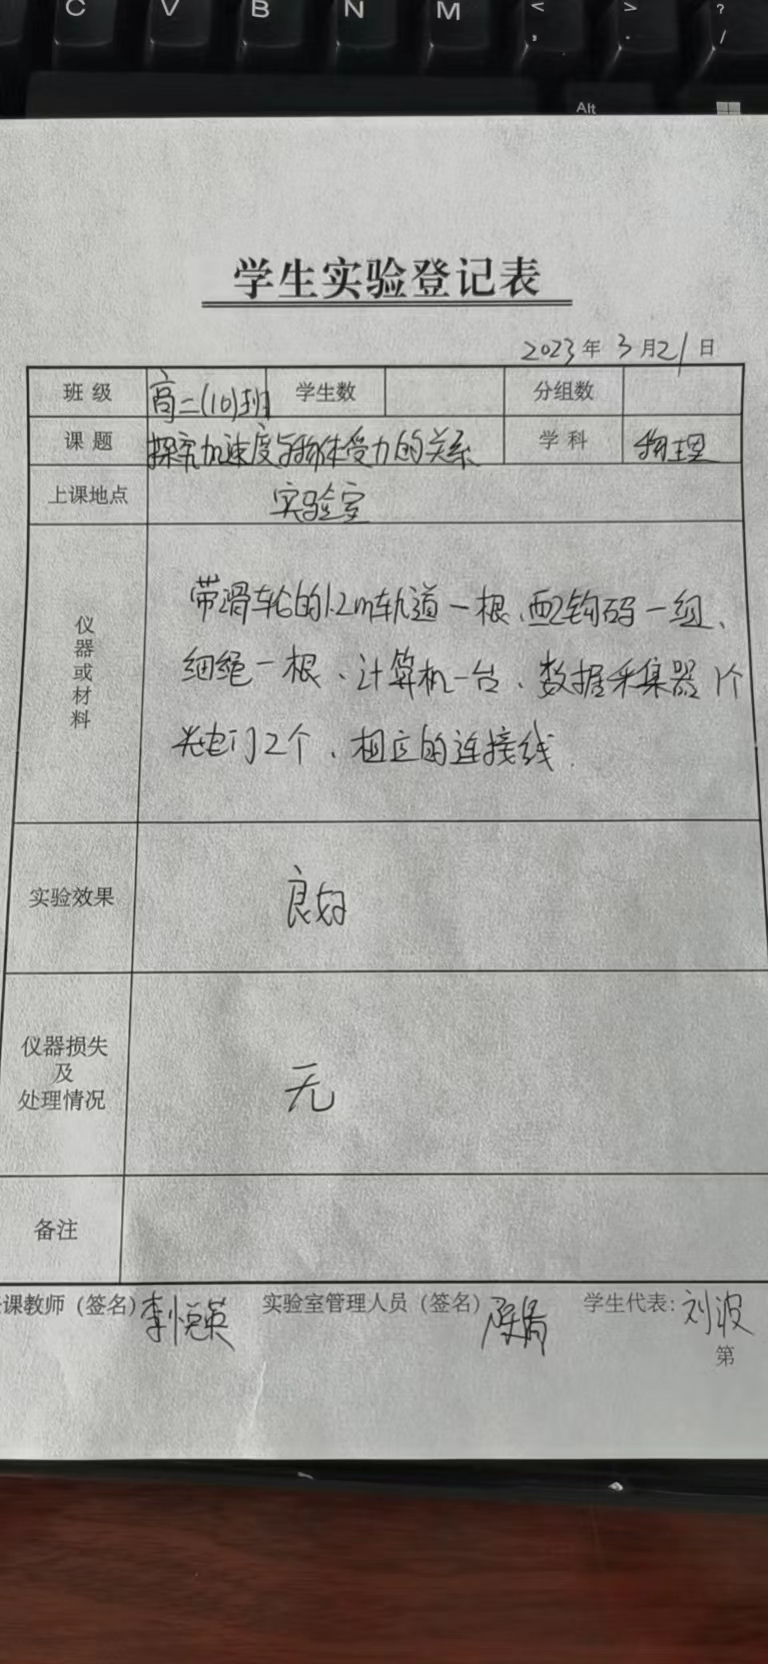 C V B N M < , > . ? /
Alt
学生实验登记表
2023年3月21日
班级 高二(10)班 学生数 分组数
课题 探究加速度与物体受力的关系 学科 物理
上课地点 实验室
仪器或材料
带滑轮的1.2m轨道一根、配钩码一组、
细绳一根、计算机一台、数据采集器1个
光电门2个、相应的连接线.
实验效果 良好
仪器损失
及
处理情况
无
备注
课教师(签名) 李悦英 实验室管理人员(签名) 学生代表: 刘波
第